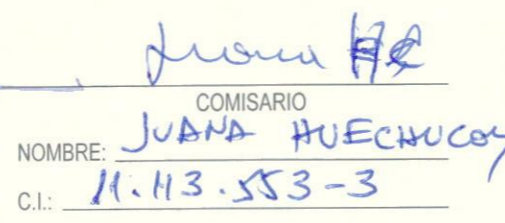 Juana HC
COMISARIO
NOMBRE: JUANA HUECHUCOY
C.I.: 11.113.553-3